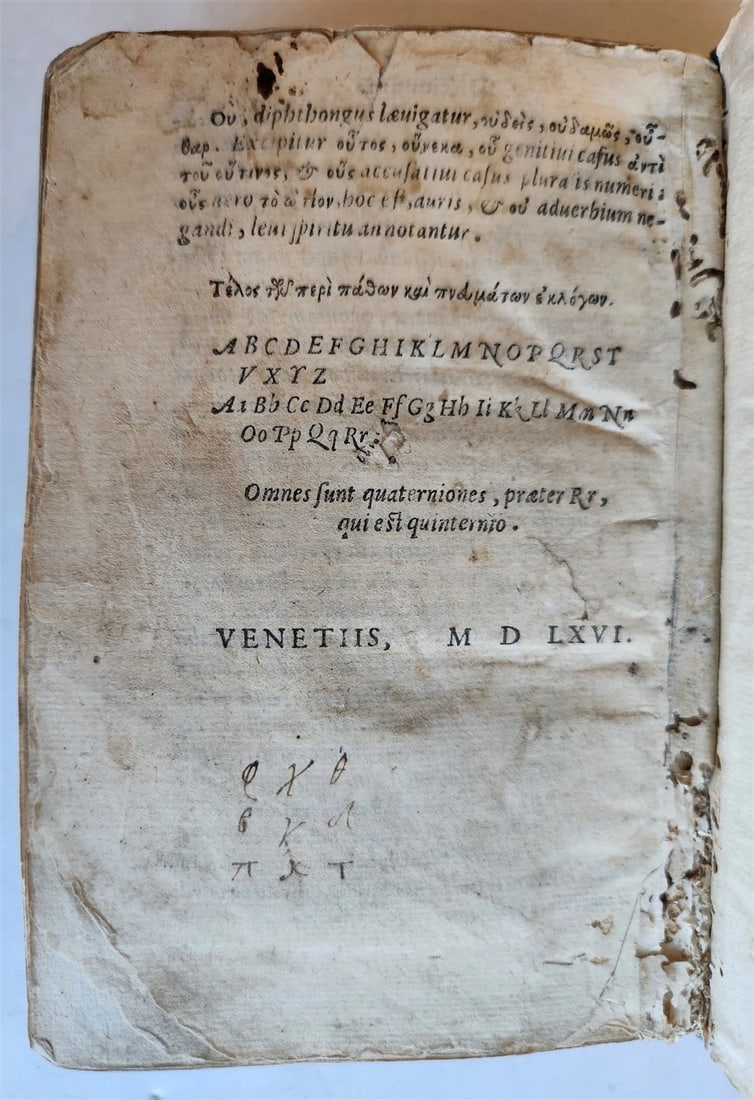 Ου, diphthongus læuigatur, οὐδεὶς, οὐδαμῶς, οὖ-
θαρ. Excipitur οὗτος, οὕνεκα, οὗ genitiui casus ἀντὶ
τοῦ οὗτινος, & οὓς accusatiui casus pluralis numeri:
οὖς uero τὸ ὠτίον, hoc est, auris, & οὐ aduerbium ne-
gandi, leui spiritu annotantur.
Τέλος τῶν περὶ πάθων καὶ πνευμάτων ἐκλόγων.
A B C D E F G H I K L M N O P Q R S T
V X Y Z
Aa Bb Cc Dd Ee Ff Gg Hh Ii Kk Ll Mm Nn
Oo Pp Qq Rr.
Omnes sunt quaterniones, præter Rr,
qui est quinternio.
VENETIIS, M D LXVI.
φ χ θ
β γ δ
π κ τ